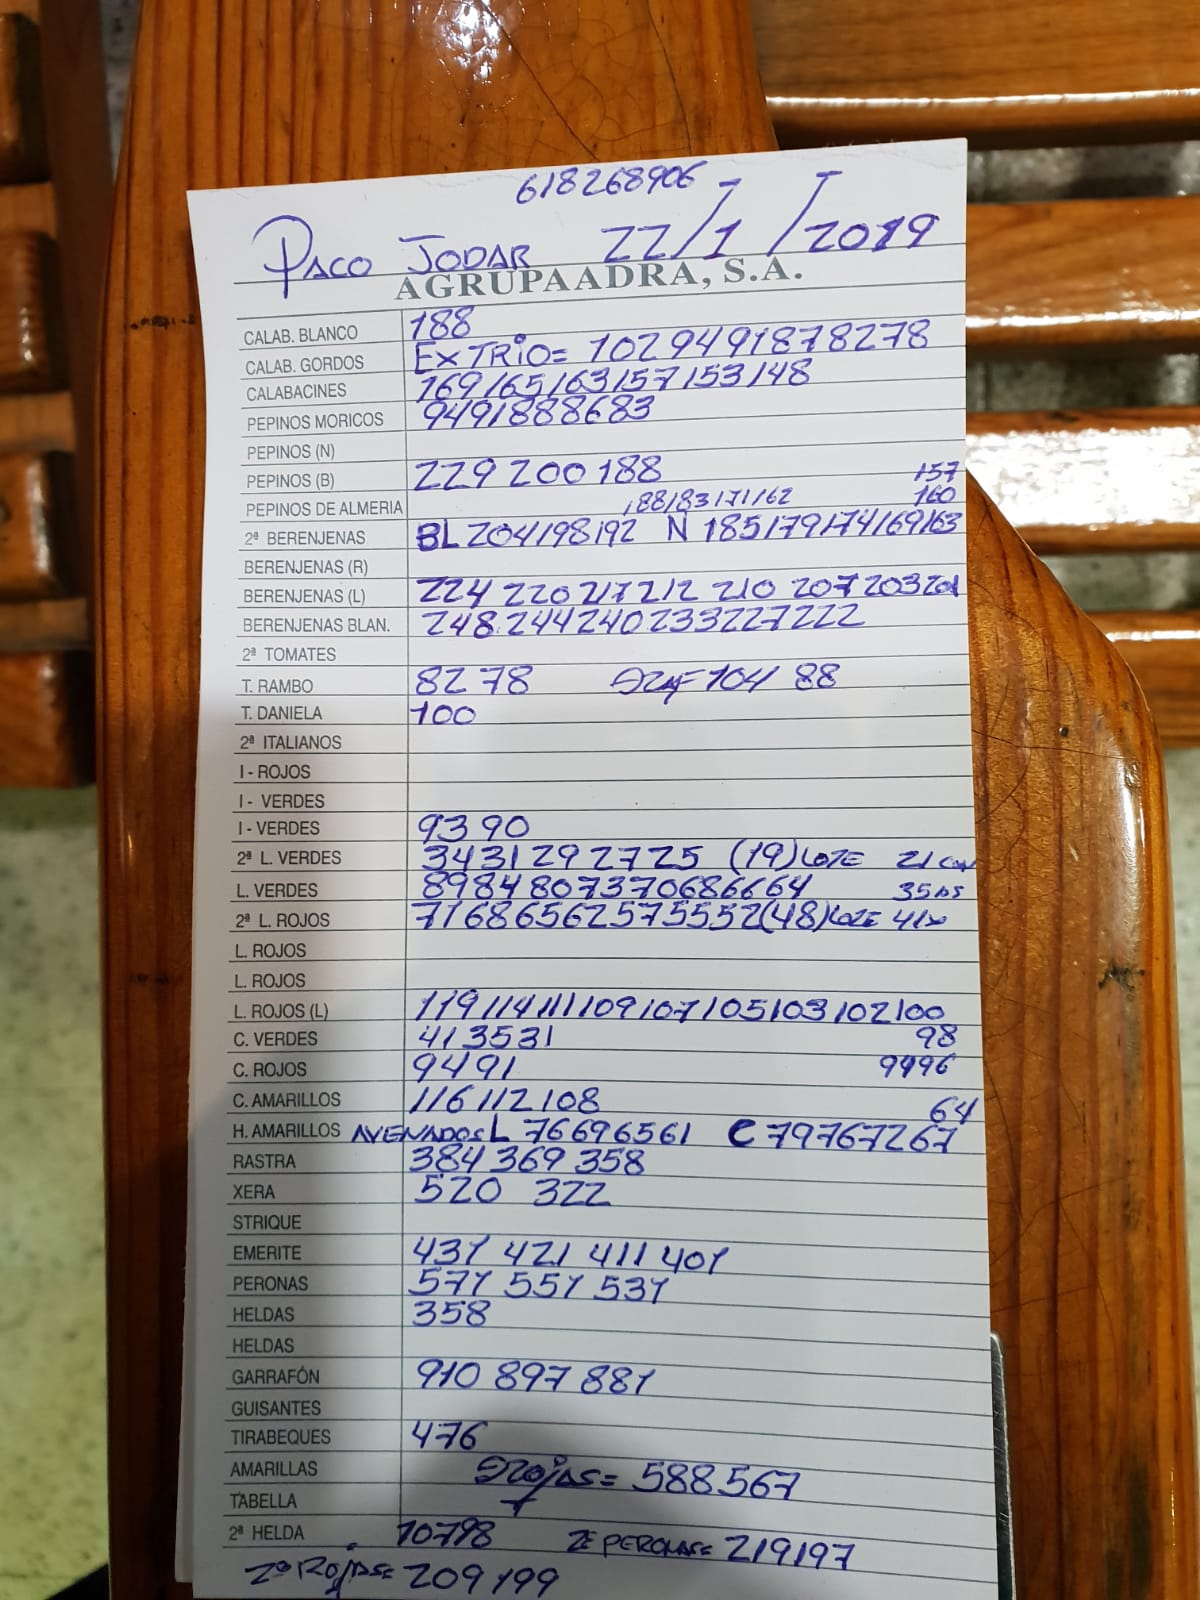 618268906
PACO JODAR 22/1/2019
AGRUPAADRA, S.A.
CALAB. BLANCO 188
CALAB. GORDOS EXTRIO= 10294918 78278
CALABACINES 169/165/163/157/153/148
PEPINOS MORICOS 9491888683
PEPINOS (N)
PEPINOS (B) 229 200 188 157
PEPINOS DE ALMERIA 188/183/171/162 160
2ª BERENJENAS BL 204/198/192 N 185/179/174/169/163
BERENJENAS (R)
BERENJENAS (L) 224 220 217 212 210 207 203 201
BERENJENAS BLAN. 248.244240233227222
2ª TOMATES
T. RAMBO 82 78 104 88
T. DANIELA 100
2ª ITALIANOS
I - ROJOS
I - VERDES
I - VERDES 93 90
2ª L. VERDES 3431292725 (19) LOTE 21
L. VERDES 898480737068 6664 35
2ª L. ROJOS 71686562575552(48) LOTE 41
L. ROJOS
L. ROJOS
L. ROJOS (L) 119114111109107105103102100
C. VERDES 413531 98
C. ROJOS 9491 9796
C. AMARILLOS 116112108 64
H. AMARILLOS AVENADOS L 76696561 C 79767267
RASTRA 384 369 358
XERA 520 322
STRIQUE
EMERITE 431 421 411 401
PERONAS 571 551 531
HELDAS 358
HELDAS
GARRAFÓN 910 897 881
GUISANTES
TIRABEQUES 476
AMARILLAS ROJAS= 588567
TABELLA
2ª HELDA 10798 2ª PERONAS= 219197
2ª ROJAS= 209199